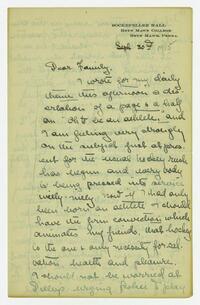 ROCKEFELLER HALL
BRYN MAWR COLLEGE
BRYN MAWR, PENNA.
Sept. 30th 1915
Dear Family,
I wrote for my daily
theme this afternoon a dis-
sertation of a page & a half
on "Oh! to be an athlete," and
I am feeling very strongly
on the subject just at pres-
ent for the usual hockey rush
has begun and everybody
is being pressed into service
willy-nilly. Now if I had only
been born an athlete I should
have the firm conviction which
animates my friends, that hockey
is the one & only necessity for sal-
vation, health and pleasure.
I should not be worried at
urging fishes to play